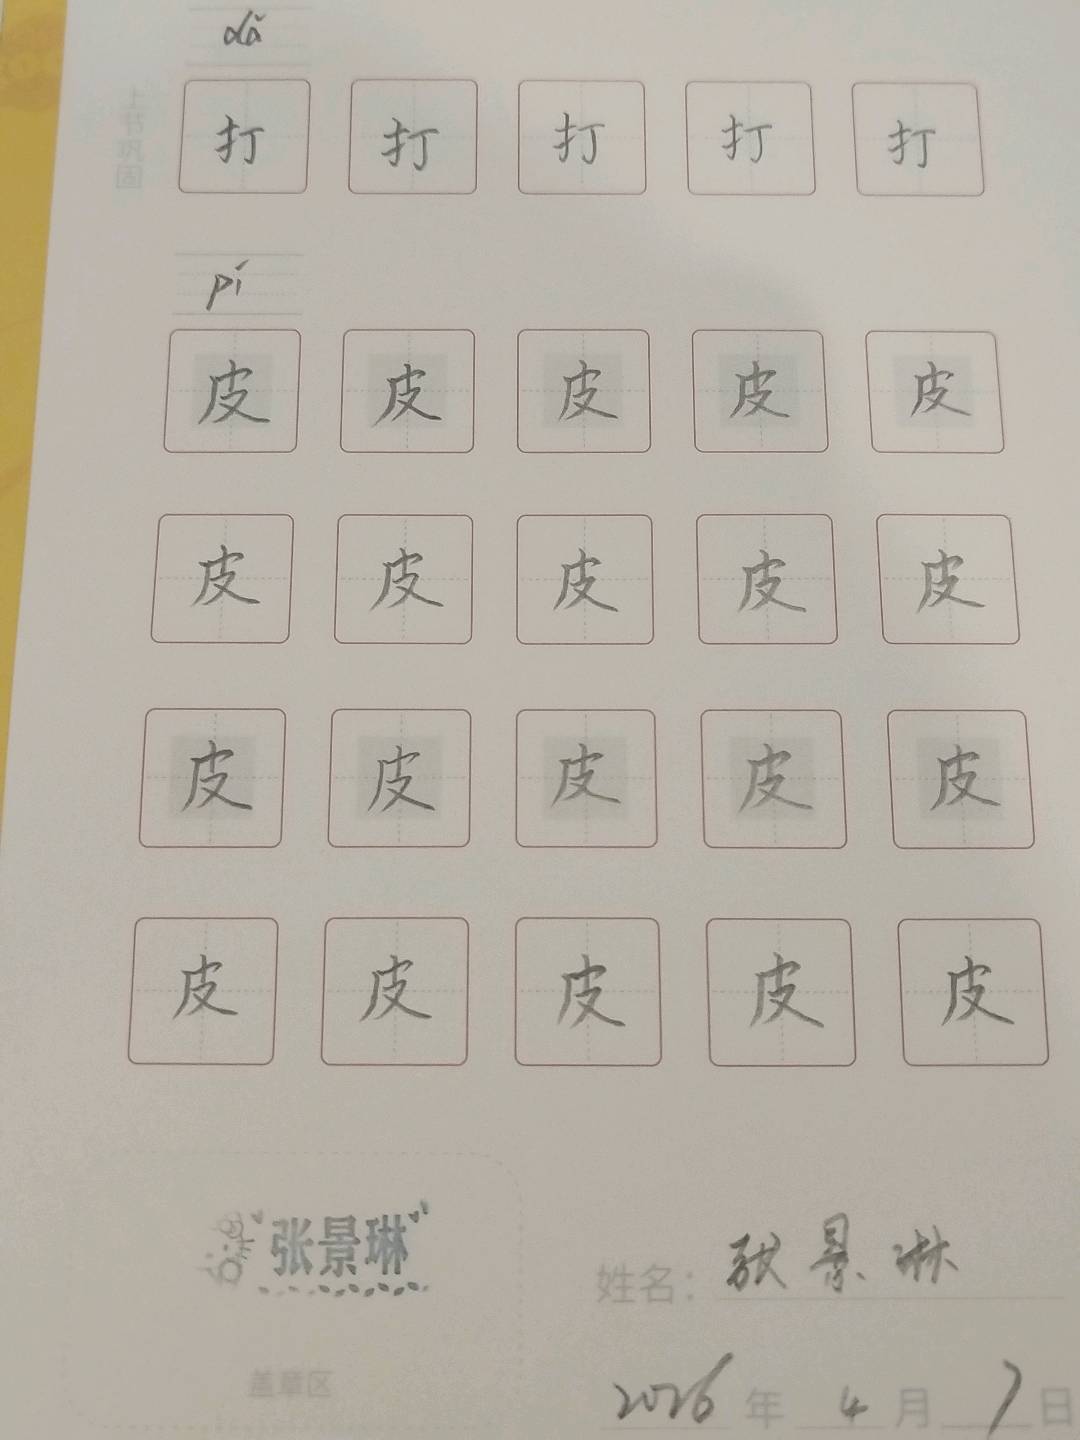 dǎ
上书巩固
打 打 打 打 打
pí
皮 皮 皮 皮 皮
皮 皮 皮 皮 皮
皮 皮 皮 皮 皮
皮 皮 皮 皮 皮
张景琳
盖章区
姓名: 张景琳
2026年4月7日